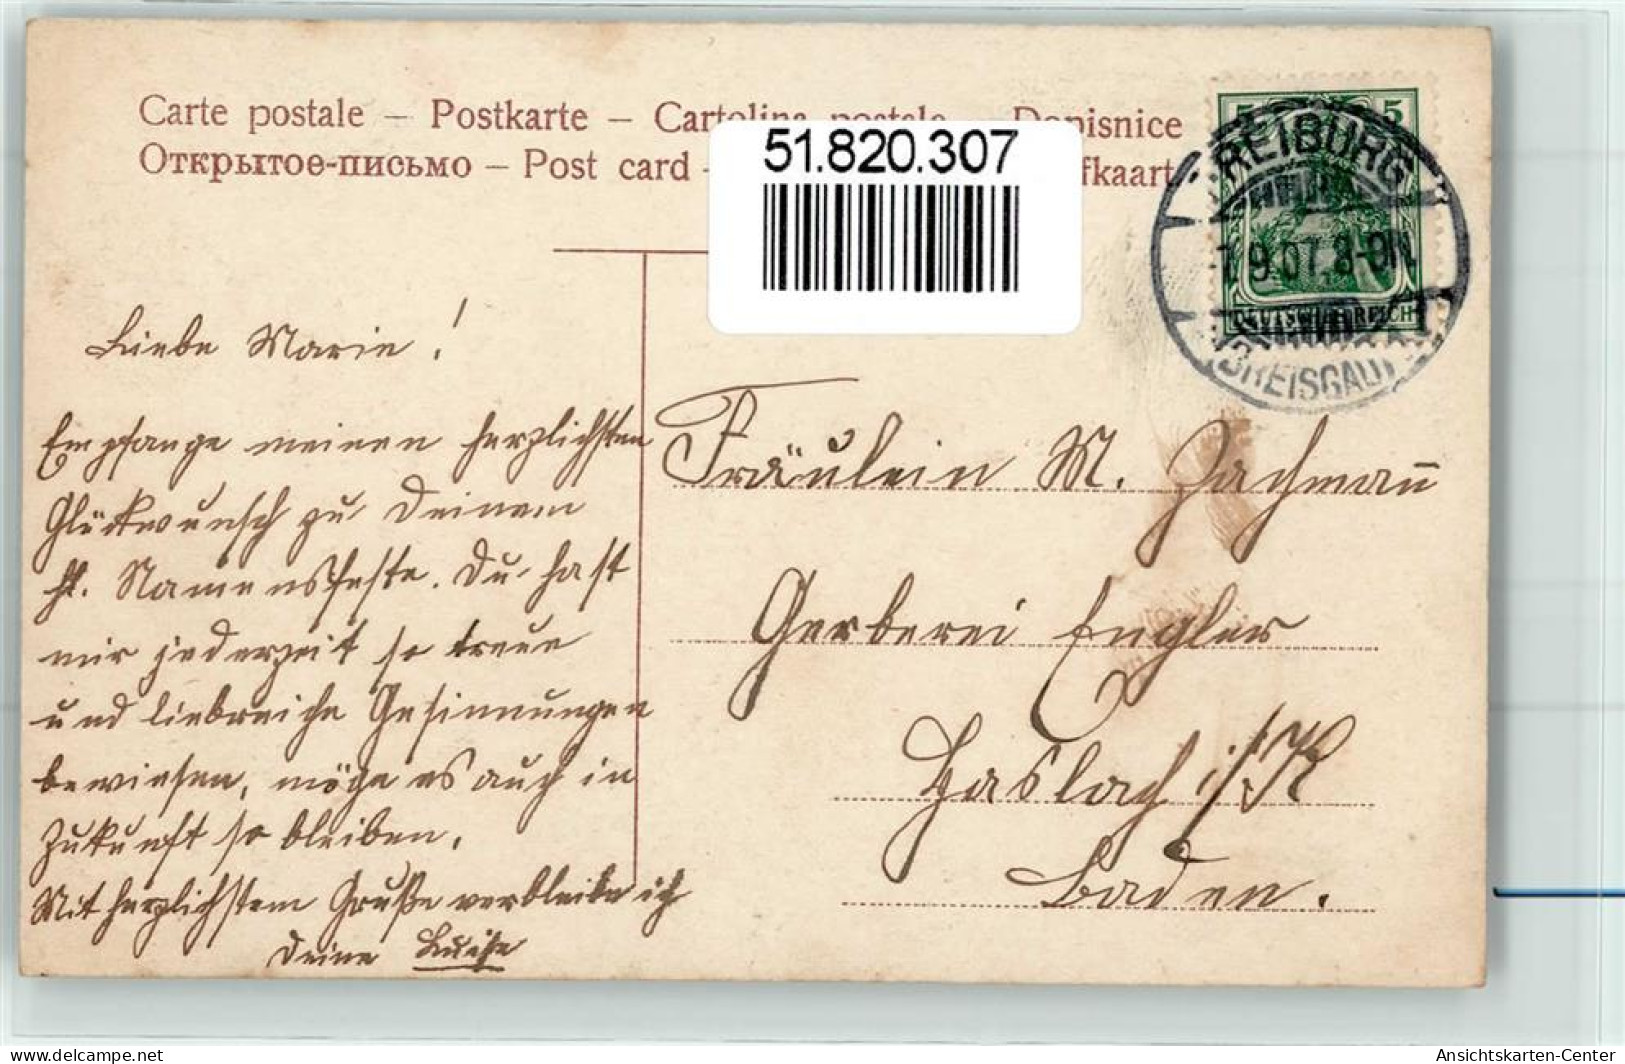 Carte postale – Postkarte – Cartolina postale – Dopisnice
Открытое-письмо – Post card –
fkaart
51.820.307
5 5
FREIBURG
9.07. 8-9N.
DEUTSCHES REICH
BREISGAU
Liebe Marie!
Empfange meinen herzlichsten
Glückwunsch zu Deinem
hl. Namensfeste. Du hast
mir jederzeit so treue
und liebreiche Gesinnungen
bewiesen, möge es auch in
Zukunft so bleiben.
Mit herzlichstem Gruße verbleibe ich
Deine Luise
Fräulein M. Zachmann̄
Gerberei Engler
Haslach i/K
Baden.
www.delcampe.net
Ansichtskarten-Center